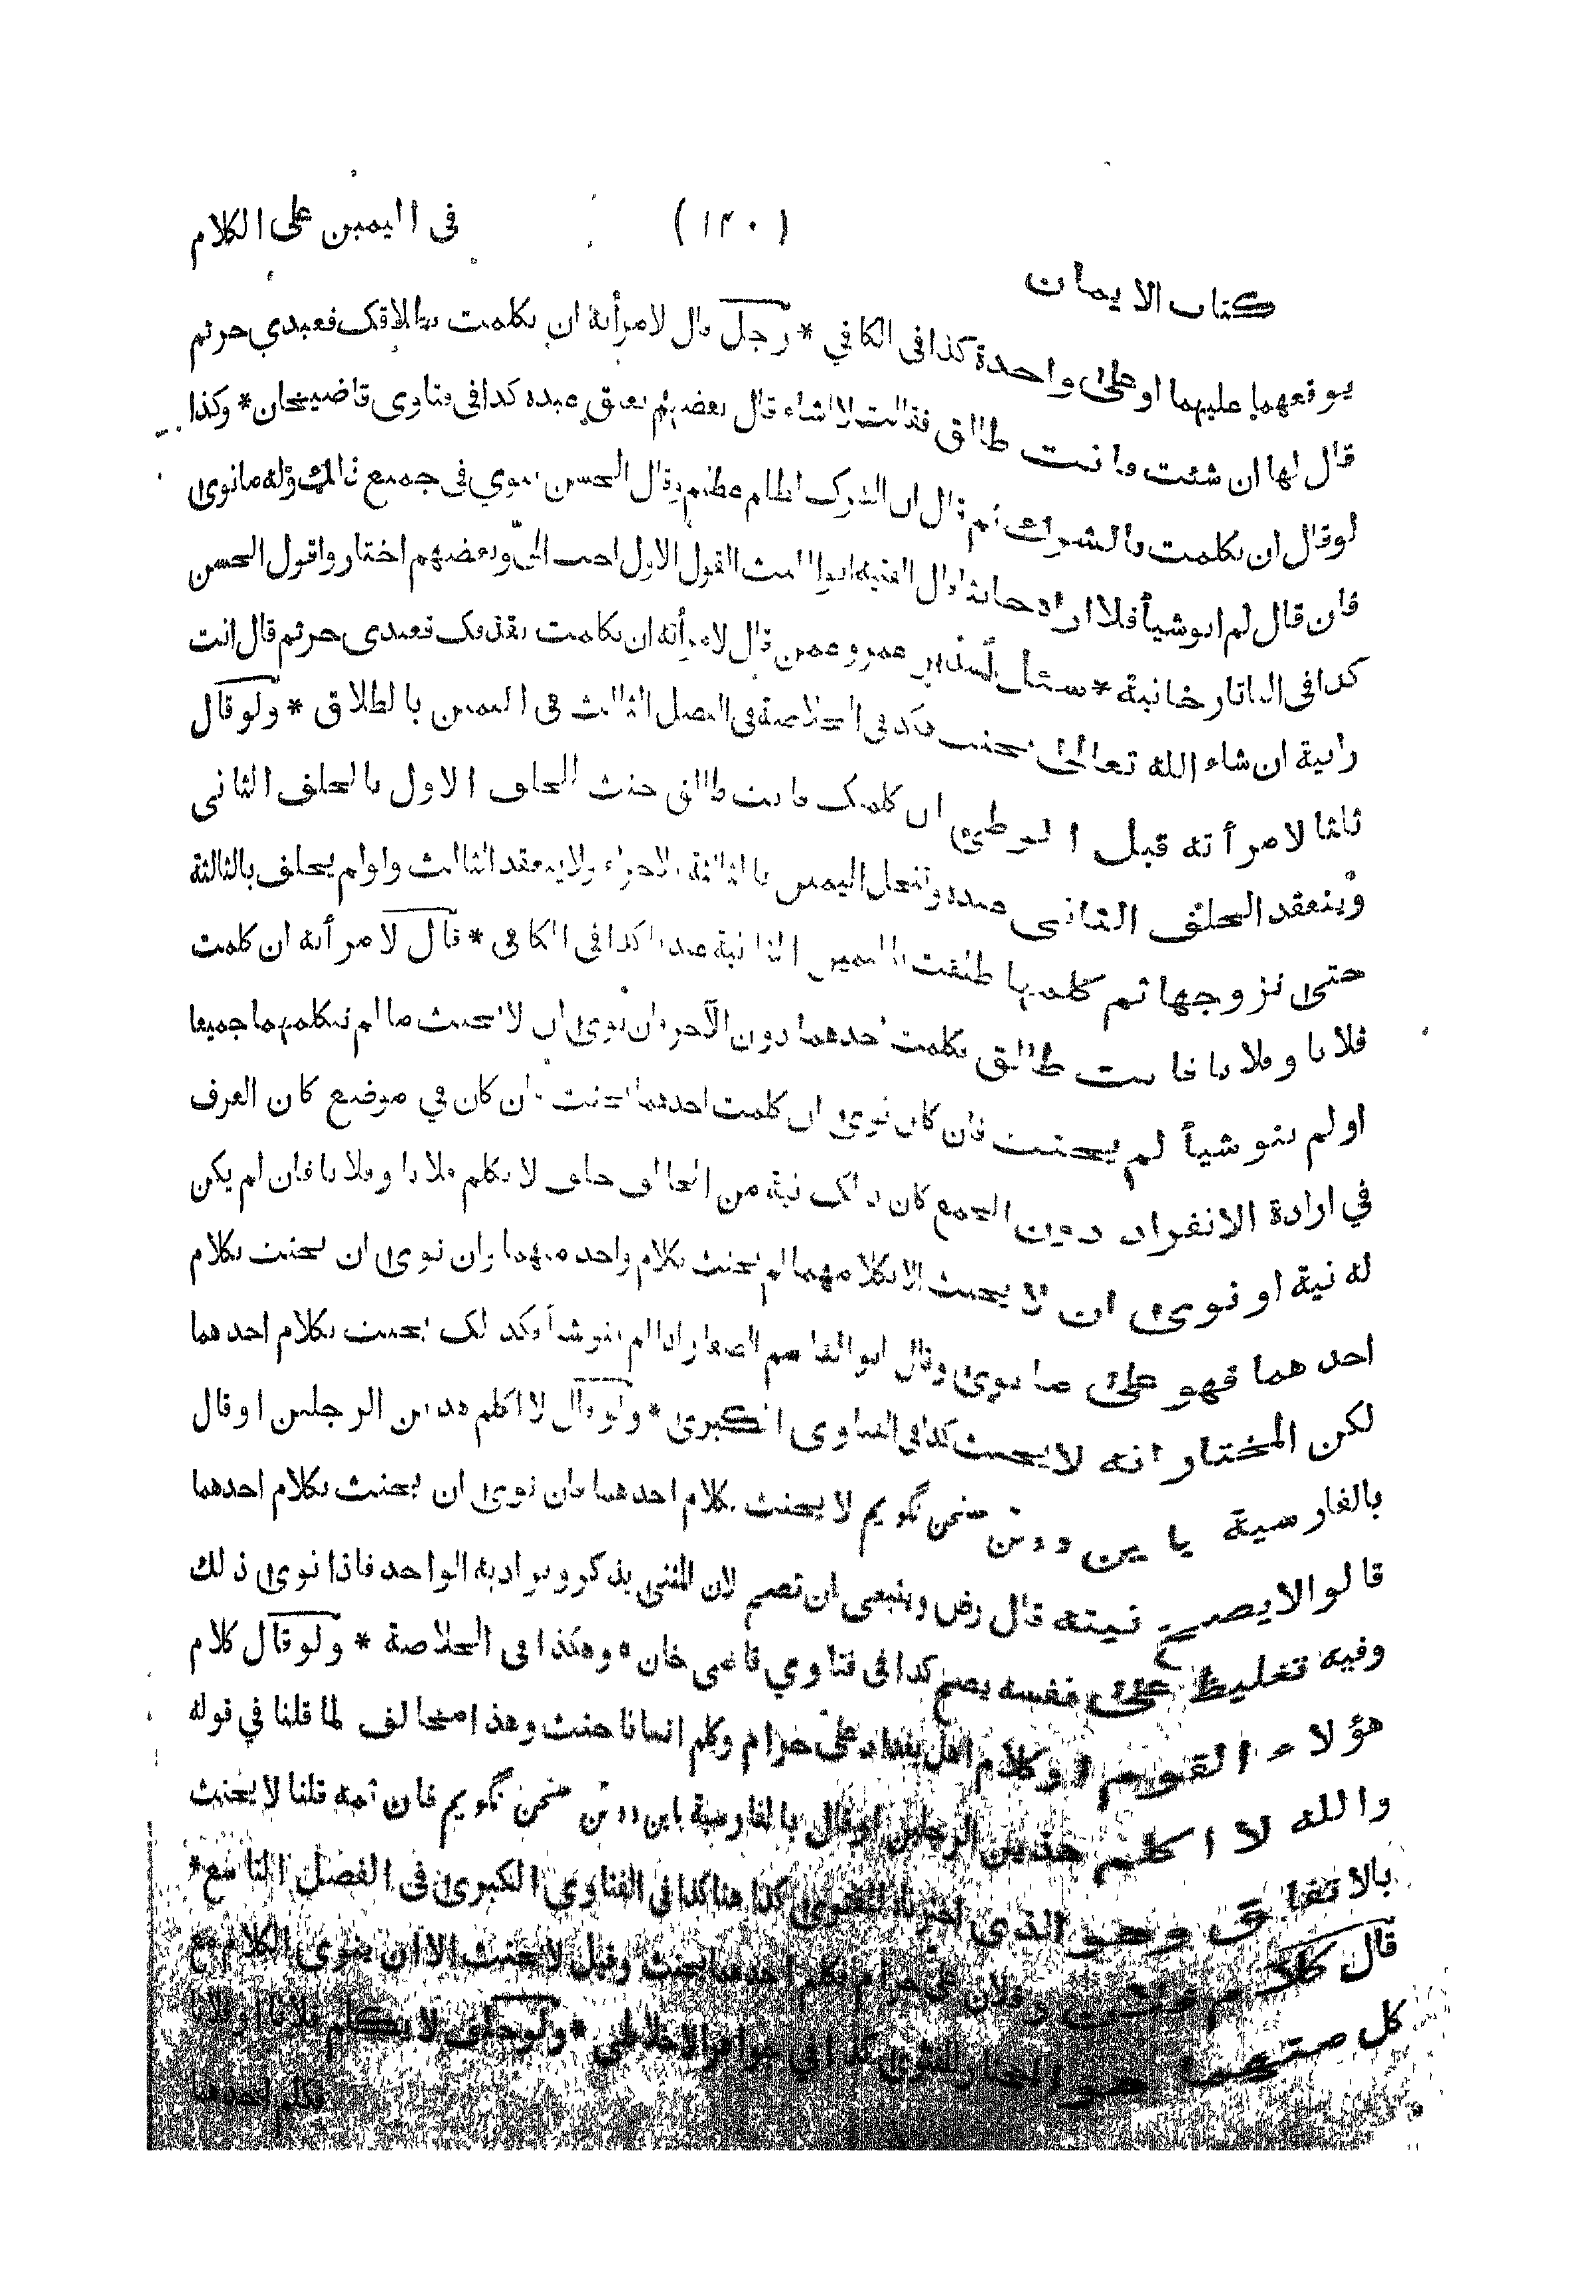 كتاب الايمان (١٢٠) في اليمين على الكلام
يوقعهما عليهما او على واحدة كذا في الكافي * رجل قال لامرأته ان تكلمت بطلاقك فعبدي حر ثم
قال لها ان شئت فانت طالق فقالت لا اشاء قال بعضهم يعتق عبده كذا في فتاوى قاضيخان * وكذا
لو قال ان تكلمت بالشرك ثم قال ان الشرك لظلم عظيم وقال الحسن ينوي في جميع ذلك وله ما نوى
فان قال لم انو شيأ فلا اراه حانثا قال الفقيه ابو الليث القول الاول احب الي وبعضهم اختاروا قول الحسن
كذا في التاتارخانية * سئل عمن قال لامرأته ان تكلمت بقذفك فعبدي حر ثم قال انت
زانية ان شاء الله تعالى يحنث كذا في الخلاصة في الفصل الثالث في اليمين بالطلاق * ولو قال
ثلثا لامرأته قبل الوطئ ان كلمتك فانت طالق حنث الحلف الاول بالحلف الثاني
وينعقد الحلف الثاني عنده وتنحل اليمين بالثالثة لا جزاء ولا ينعقد الثالث ولو لم يحلف بالثالثة
حتى تزوجها ثم كلمها طلقت باليمين الثانية عندنا كذا في الكافي * قال لامرأته ان كلمت
فلانا وفلانا فانت طالق فكلمت احدهما دون الآخر فان نوى ان لا يحنث ما لم تكلمهما جميعا
او لم ينو شيأ لم يحنث فان كان نوى ان كلمت احدهما يحنث وان كان في موضع كان العرف
في ارادة الانفراد دون الجمع كان ذلك نية من الحالف حلف لا يكلم فلانا وفلانا فان لم يكن
له نية او نوى ان لا يحنث الا بكلامهما لم يحنث بكلام واحد منهما وان نوى ان يحنث بكلام
احدهما فهو على ما نوى وقال ابو القاسم الصفار اذا لم ينو شيأ فكذلك يحنث بكلام احدهما
لكن المختار انه لا يحنث كذا في الفتاوى الكبرى * ولو قال لا اكلم هذين الرجلين او قال
بالفارسية باين دو تن سخن نگويم لا يحنث بكلام احدهما وان نوى ان يحنث بكلام احدهما
قالوا لا يصح نيته قال رض وينبغي ان تصح لان المثنى يذكر ويراد به الواحد فاذا نوى ذلك
وفيه تغليظ على نفسه يصح كذا في فتاوي قاضي خان * وهكذا في الخلاصة * ولو قال كلام
هؤلاء القوم او كلام اهل بغداد على حرام وكلم انسانا حنث وهذا مخالف لما قلنا في قوله
والله لا اكلم هذين الرجلين او قال بالفارسية باين دو تن سخن نگويم فان ثمه قلنا لا يحنث
بالاتفاق وهو الذي اخترنا للفتوى كذا هنا كذا في الفتاوي الكبرى في الفصل التاسع *
قال كلام فلان وفلان على حرام فكلم احدهما يحنث وقيل لا يحنث الا ان ينوي الكلام مع
كل منهما هو المختار للفتوى كذا في جواهر الاخلاطي * ولو حلف لا يكلم فلانا او فلانا
فكلم احدهما